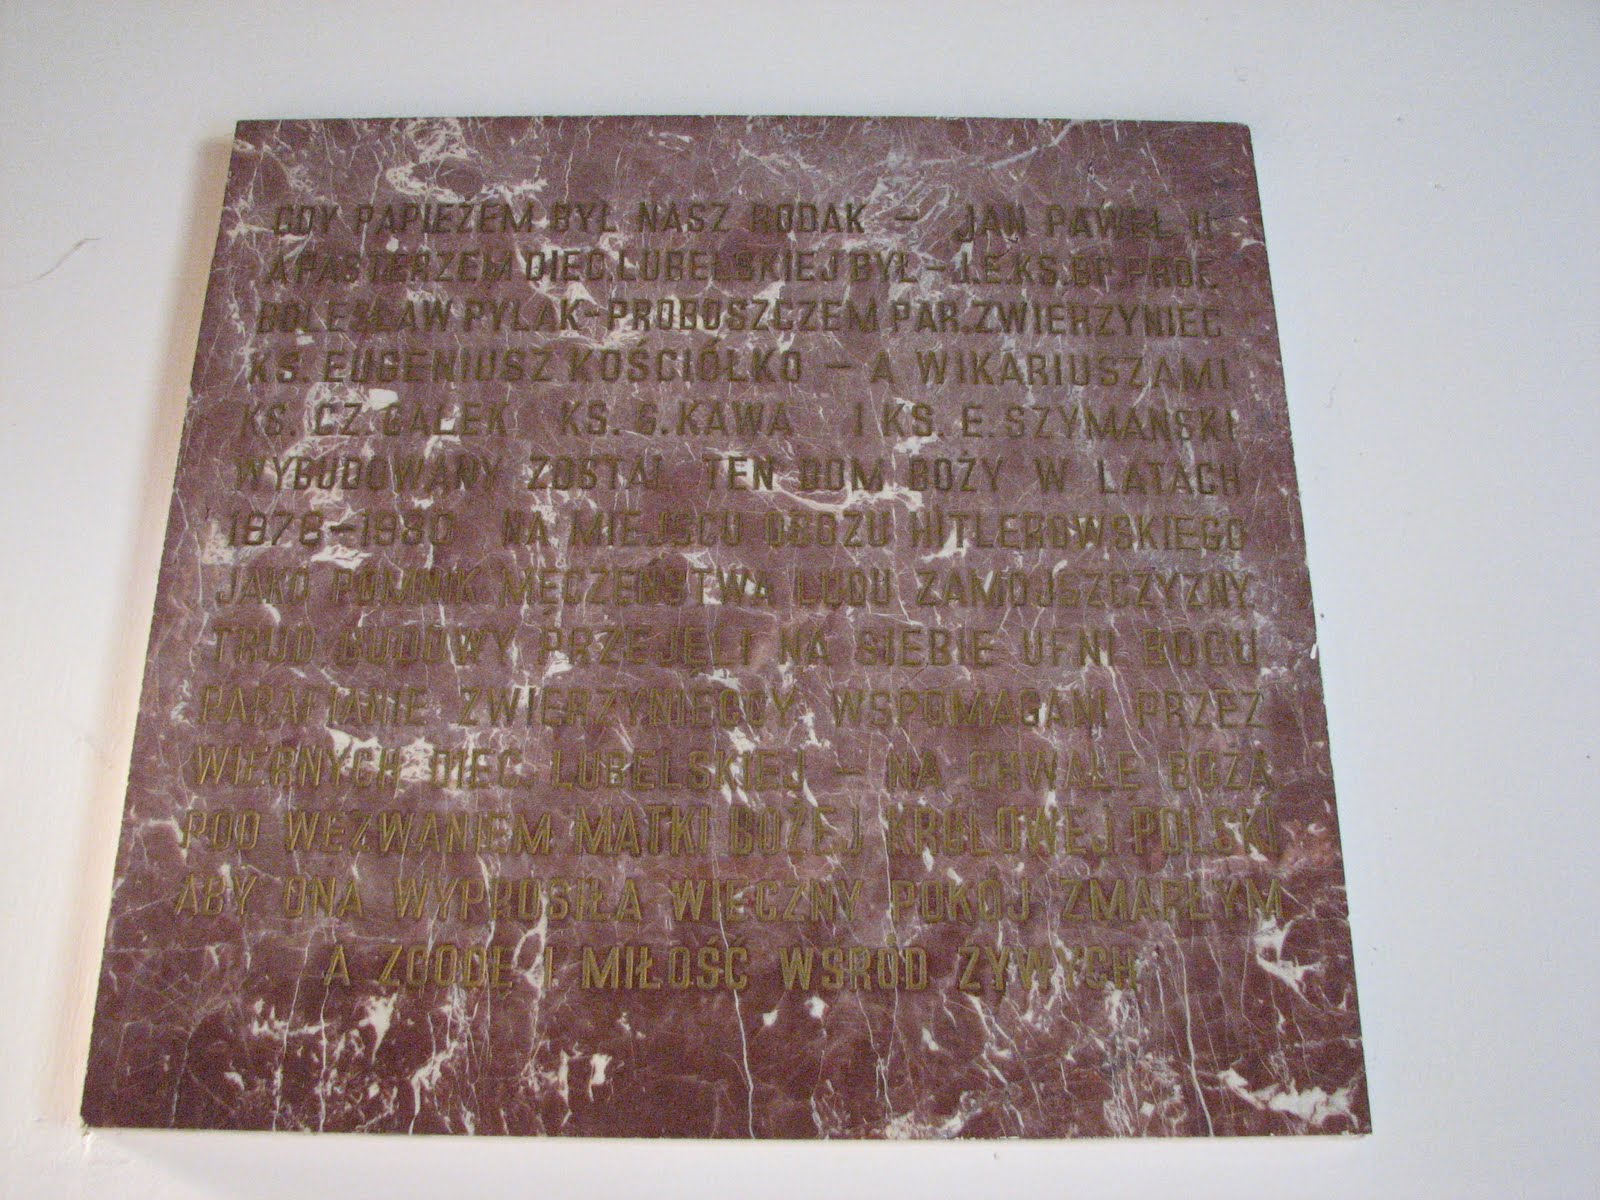 GDY PAPIEŻEM BYŁ NASZ RODAK – JAN PAWEŁ II
A PASTERZEM DIEC. LUBELSKIEJ BYŁ – J.E. KS. BP. PROF.
BOLESŁAW PYLAK – PROBOSZCZEM PAR. ZWIERZYNIEC
KS. EUGENIUSZ KOŚCIÓŁKO – A WIKARIUSZAMI
KS. CZ. GALEK KS. G. KAWA I KS. E. SZYMAŃSKI
WYBUDOWANY ZOSTAŁ TEN DOM BOŻY W LATACH
1978–1980 NA MIEJSCU OBOZU HITLEROWSKIEGO
JAKO POMNIK MĘCZEŃSTWA LUDU ZAMOJSZCZYZNY
TRUD BUDOWY PRZEJĘLI NA SIEBIE UFNI BOGU
PARAFIANIE ZWIERZYNIECCY WSPOMAGANI PRZEZ
WIERNYCH DIEC. LUBELSKIEJ – NA CHWAŁĘ BOŻĄ
POD WEZWANIEM MATKI BOŻEJ KRÓLOWEJ POLSKI
ABY ONA WYPROSIŁA WIECZNY POKÓJ ZMARŁYM
A ZGODĘ I MIŁOŚĆ WŚRÓD ŻYWYCH